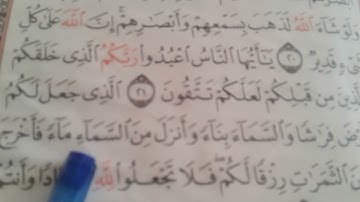 وَلَوْ شَآءَ ٱللَّهُ لَذَهَبَ بِسَمْعِهِمْ وَأَبْصَٰرِهِمْ ۚ إِنَّ ٱللَّهَ عَلَىٰ كُلِّ
شَىْءٍ قَدِيرٌ ٢٠ يَٰٓأَيُّهَا ٱلنَّاسُ ٱعْبُدُوا۟ رَبَّكُمُ ٱلَّذِى خَلَقَكُمْ
وَٱلَّذِينَ مِن قَبْلِكُمْ لَعَلَّكُمْ تَتَّقُونَ ٢١ ٱلَّذِى جَعَلَ لَكُمُ
فِرَٰشًا وَٱلسَّمَآءَ بِنَآءً وَأَنزَلَ مِنَ ٱلسَّمَآءِ مَآءً فَأَخْرَجَ
مِنَ ٱلثَّمَرَٰتِ رِزْقًا لَّكُمْ ۖ فَلَا تَجْعَلُوا۟ لِلَّهِ وَأَنتُمْ